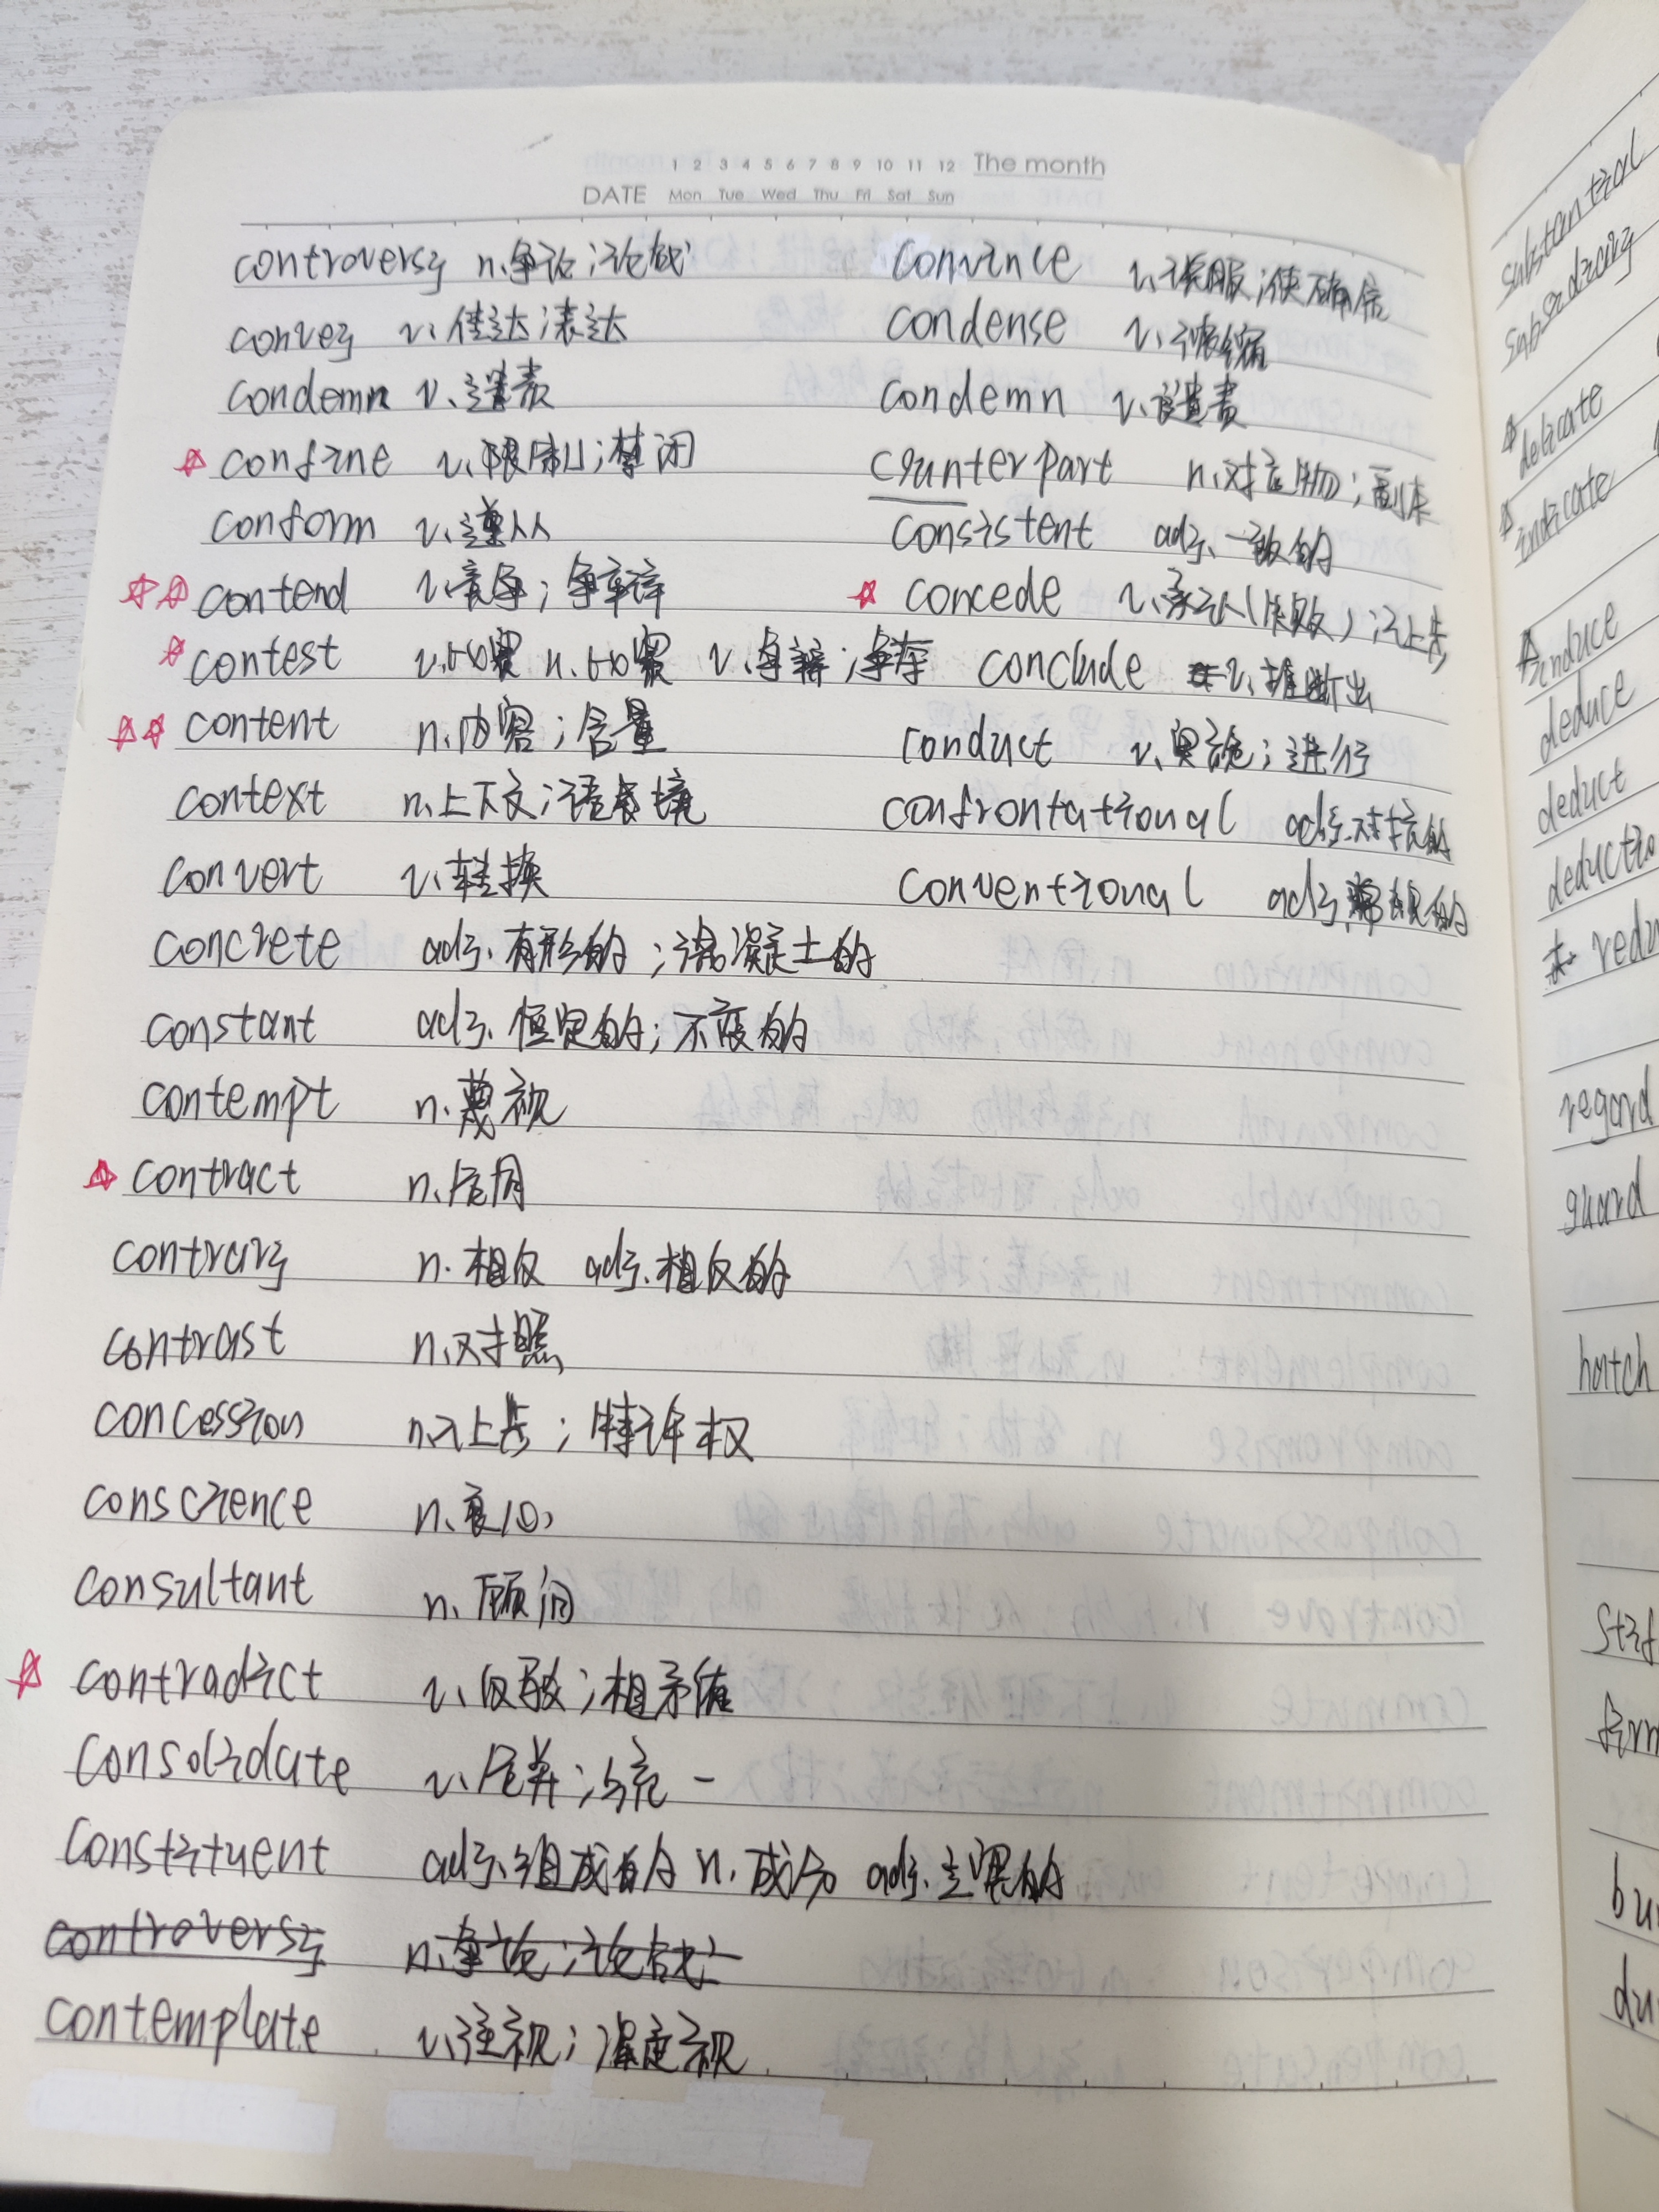 1 2 3 4 5 6 7 8 9 10 11 12 The month
DATE Mon Tue Wed Thu Fri Sat Sun
controversy n.争论;论战
convey v.传达;表达
condemn v.谴责
☆ confine v.限制;禁闭
conform v.遵从
☆☆ contend v.竞争;争辩
☆ contest v.比赛 n.比赛 v.争辩;争夺
☆☆ content n.内容;含量
context n.上下文;语境
convert v.转换
concrete adj.有形的;混凝土的
constant adj.恒定的;不变的
contempt n.蔑视
☆ contract n.合同
contrary n.相反 adj.相反的
contrast n.对照
concession n.让步;特许权
conscience n.良心
consultant n.顾问
☆ contradict v.反驳;相矛盾
consolidate v.合并;统一
constituent adj.组成的 n.成分 adj.主要的
controversy n.争论;论战
contemplate v.注视;凝视
convince v.说服;使确信
condense v.浓缩
condemn v.谴责
counterpart n.对应物;副本
consistent adj.一致的
☆ concede v.承认(失败);让步
conclude v.推断出
conduct v.实施;进行
confrontational adj.对抗的
conventional adj.常规的
substantial
subsidiary
☆ delicate
☆ indicate
☆ induce
deduce
deduct
deductio
redu
regard
guard
hatch